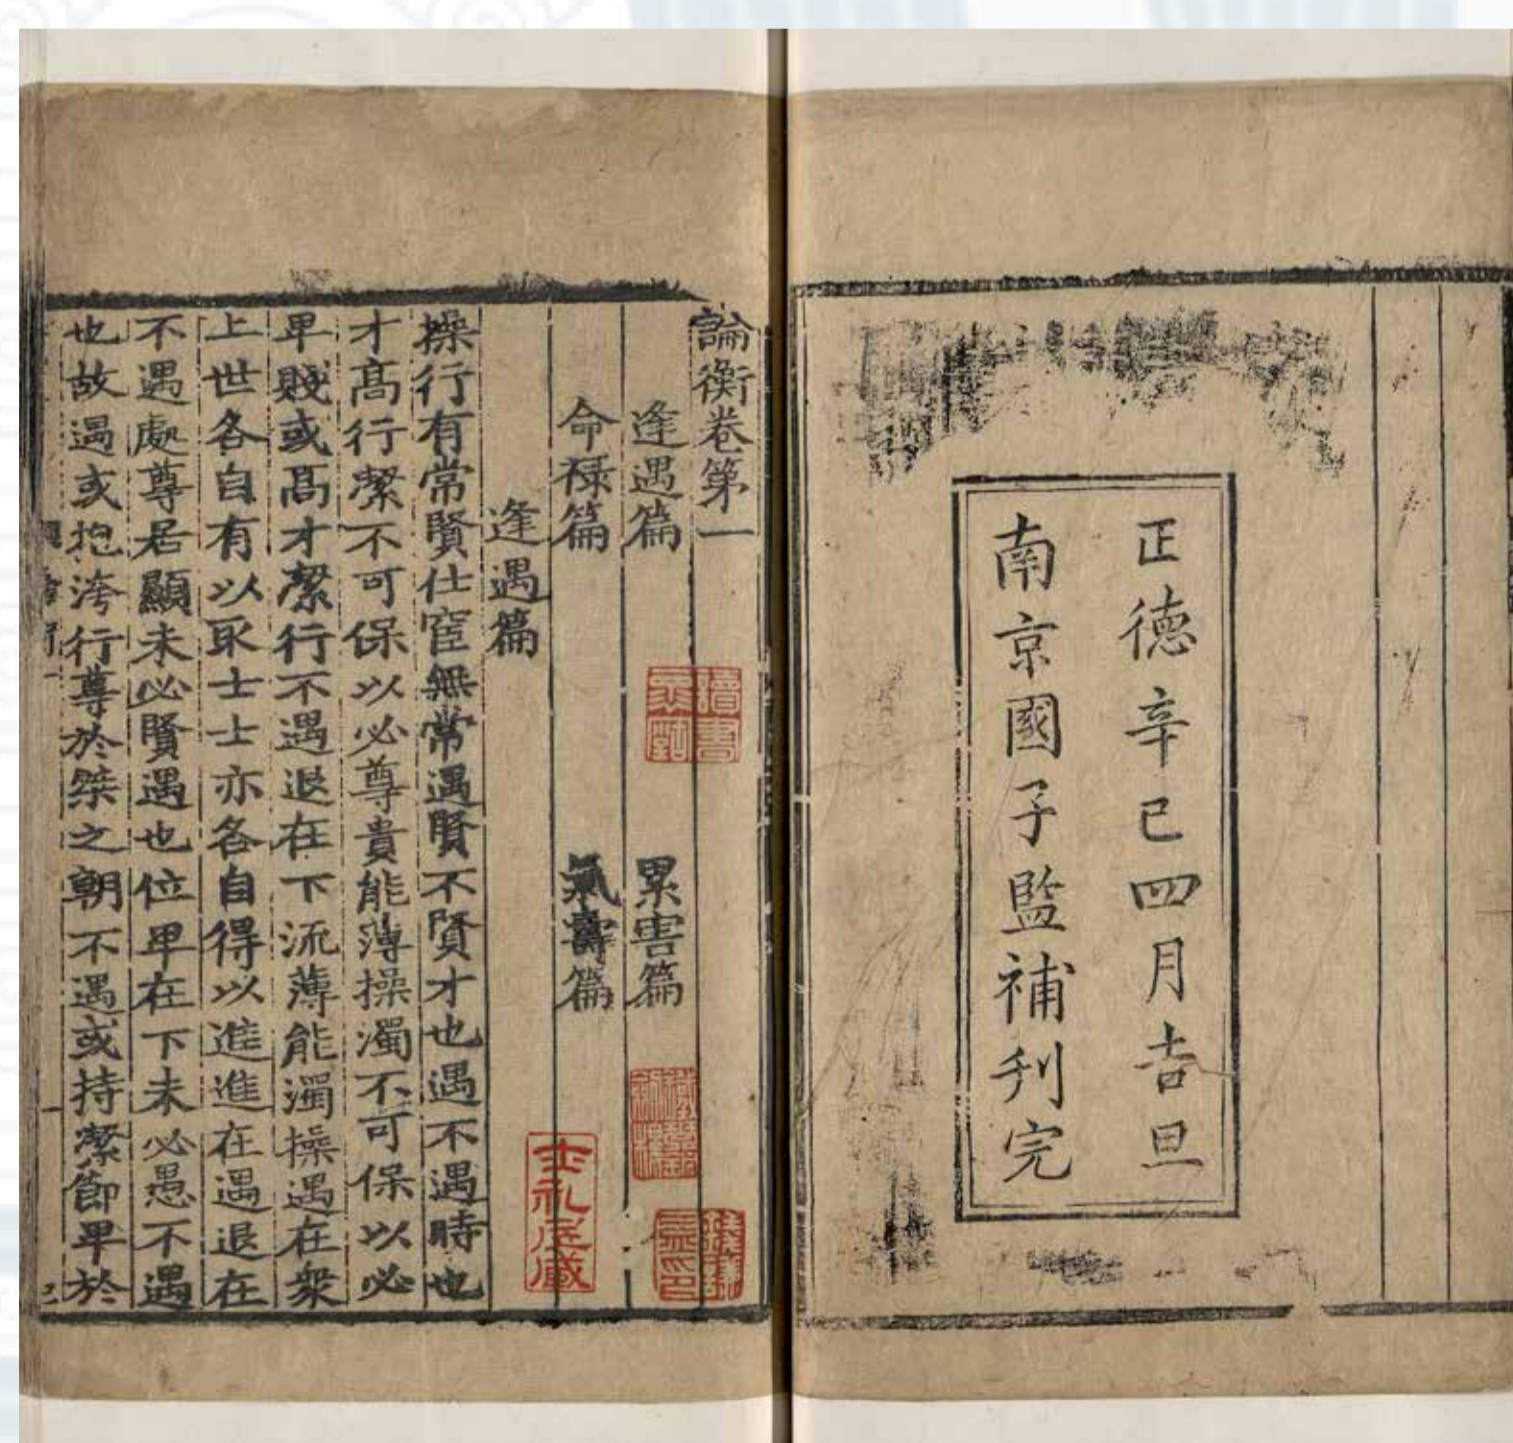 正德辛巳四月吉旦
南京國子監補刊完
論衡卷第一
逢遇篇 累害篇
命禄篇 氣壽篇
逢遇篇
操行有常賢仕宦無常遇賢不賢才也遇不遇時也
才髙行潔不可保以必尊貴能薄操濁不可保以必
卑賤或髙才潔行不遇退在下流薄能濁操遇在衆
上世各自有以取士士亦各自得以進進在遇退在
不遇處尊居顯未必賢遇也位卑在下未必愚不遇
也故遇或抱洿行尊於桀之朝不遇或持潔節卑於
士礼居藏